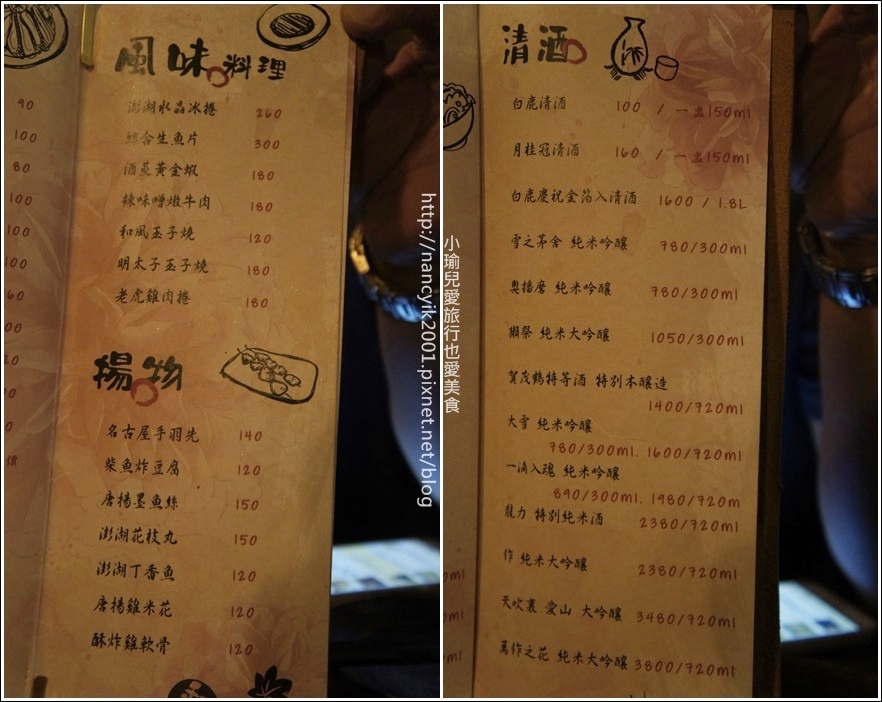 90
100
80
100
100
100
風味料理
澎湖水晶冰捲 260
綜合生魚片 300
酒蒸黃金蝦 180
辣味噌燉牛肉 180
和風玉子燒 120
明太子玉子燒 180
老虎雞肉捲 180
揚物
名古屋手羽先 140
柴魚炸豆腐 120
唐揚墨魚絲 150
澎湖花枝丸 150
澎湖丁香魚 120
唐揚雞米花 120
酥炸雞軟骨 120
http://nancyik2001.pixnet.net/blog
小瑜兒愛旅行也愛美食
清酒
白鹿清酒 100 / 一盅150ml
月桂冠清酒 160 / 一盅150ml
白鹿慶祝金箔入清酒 1600 / 1.8L
雪之茅舍 純米吟釀 780/300ml
奧播磨 純米吟釀 780/300ml
獺祭 純米大吟釀 1050/300ml
賀茂鶴特等酒 特別本釀造
1400/720ml
大雪 純米吟釀
780/300ml. 1600/720ml
一滴入魂 純米吟釀
890/300ml. 1980/720m
龍力 特別純米酒 2380/720ml
作 純米大吟釀 2380/720ml
天吹裏 愛山 大吟釀 3480/720ml
萬作之花 純米大吟釀 3800/720ml